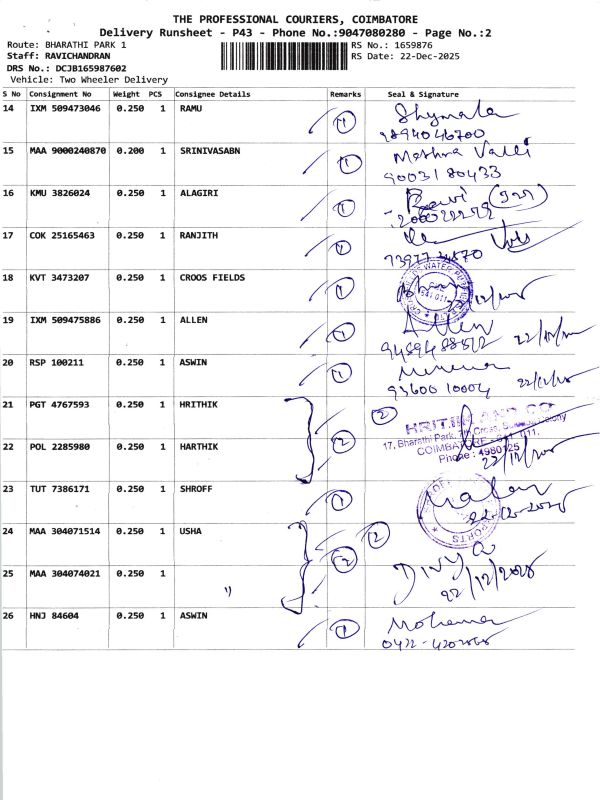 THE PROFESSIONAL COURIERS, COIMBATORE
Delivery Runsheet - P43 - Phone No.:9047080280 - Page No.:2
Route: BHARATHI PARK 1 RS No.: 1659876
Staff: RAVICHANDRAN RS Date: 22-Dec-2025
DRS No.: DCJB165987602
Vehicle: Two Wheeler Delivery
S No Consignment No Weight PCS Consignee Details Remarks Seal & Signature
14 IXM 509473046 0.250 1 RAMU 1 Shymala
9894046700
15 MAA 9000240870 0.200 1 SRINIVASABN 1 Methra Valli
9003180433
16 KMU 3826024 0.250 1 ALAGIRI 1 Ravi
17 COK 25165463 0.250 1 RANJITH 1
18 KVT 3473207 0.250 1 CROOS FIELDS 1
19 IXM 509475886 0.250 1 ALLEN 1 Allen
20 RSP 100211 0.250 1 ASWIN 1
93600 10004
21 PGT 4767593 0.250 1 HRITHIK 2 HRITHIK AND CO
17, Bharathi Park, 7th Cross,
22 POL 2285980 0.250 1 HARTHIK 2 COIMBATORE - 641 011.
Phone : 4980125
23 TUT 7386171 0.250 1 SHROFF 1
22-12-2025
24 MAA 304071514 0.250 1 USHA 2
25 MAA 304074021 0.250 1 " 2 Divya
22/12/2025
26 HNJ 84604 0.250 1 ASWIN 1 Mohana